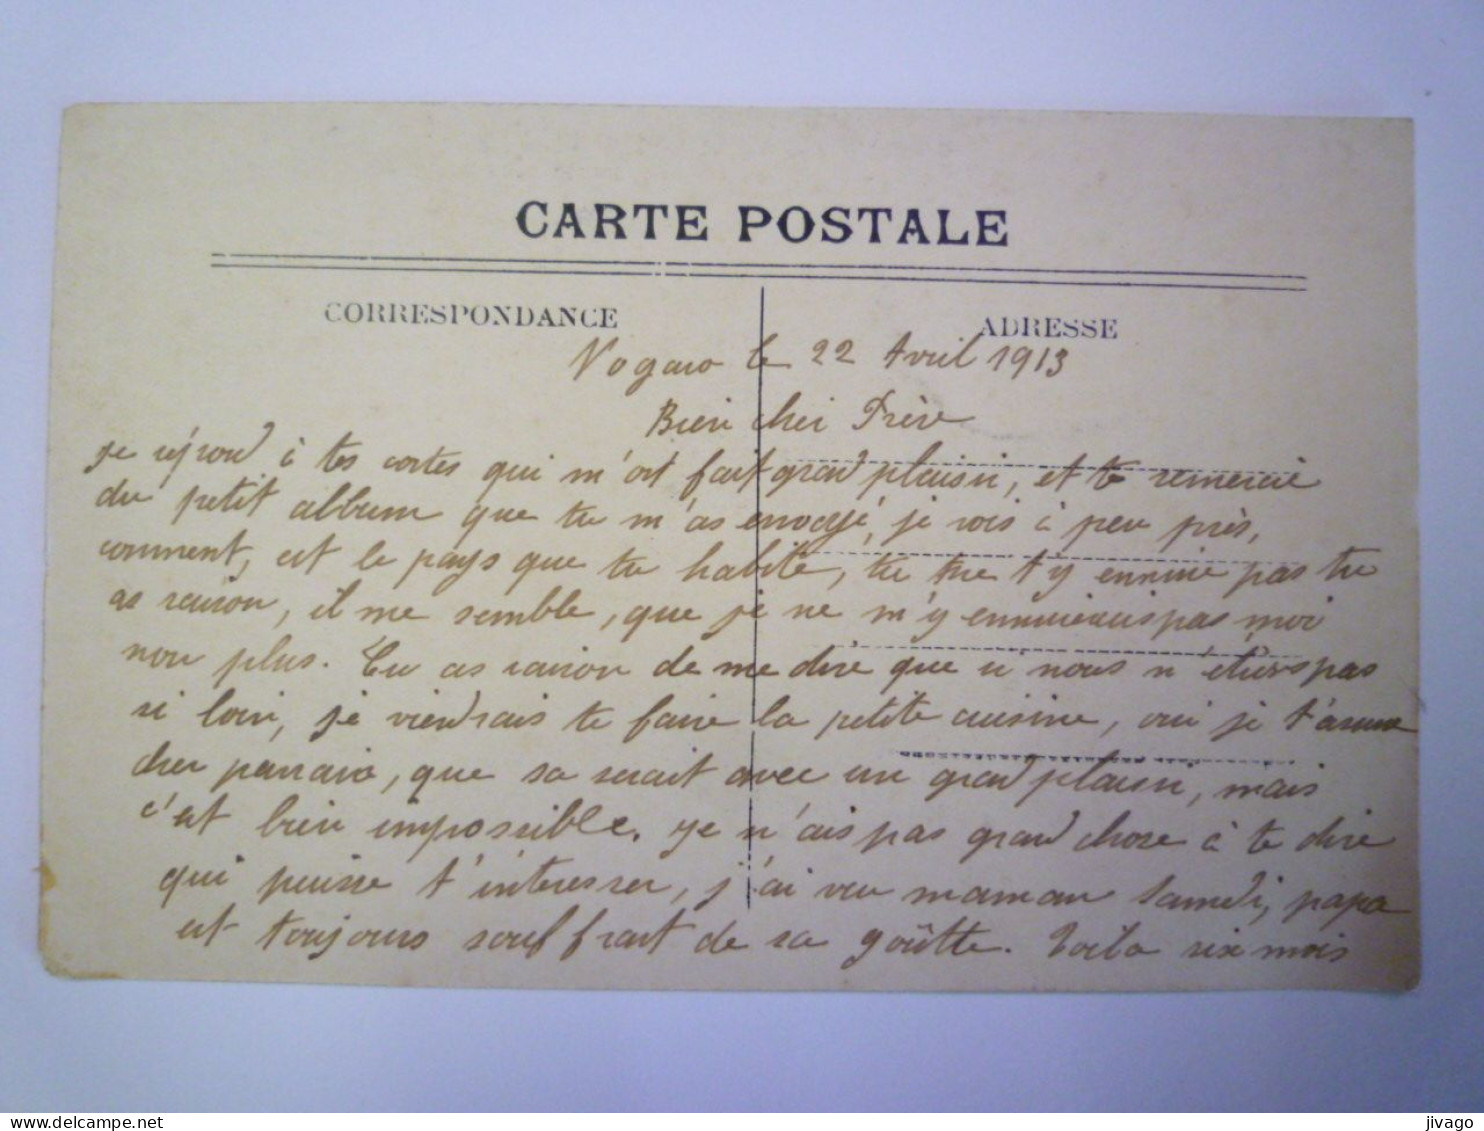 CARTE POSTALE
CORRESPONDANCE
ADRESSE
Nogaro le 22 Avril 1913
Bien cher Frère
Je répond à tes cartes qui m'ont fait grand plaisir, et te remercie
du petit album que tu m'as envoyé, je vois à peu près,
comment, est le pays que tu habite, tu ne t'y ennuie pas tu
as raison, il me semble, que je ne m'y ennuierais pas moi
non plus. Tu as raison de me dire que si nous n'étions pas
si loin, je viendrais te faire la petite cuisine, oui je t'assure
cher parrain, que sa serait avec un grand plaisir, mais
c'est bien impossible. Je n'ais pas grand chose à te dire
qui puisse t'intéresser, j'ai vu maman Samedi, papa
est toujours souffrant de sa goûtte. Voila six mois
jivago
delcampe.net